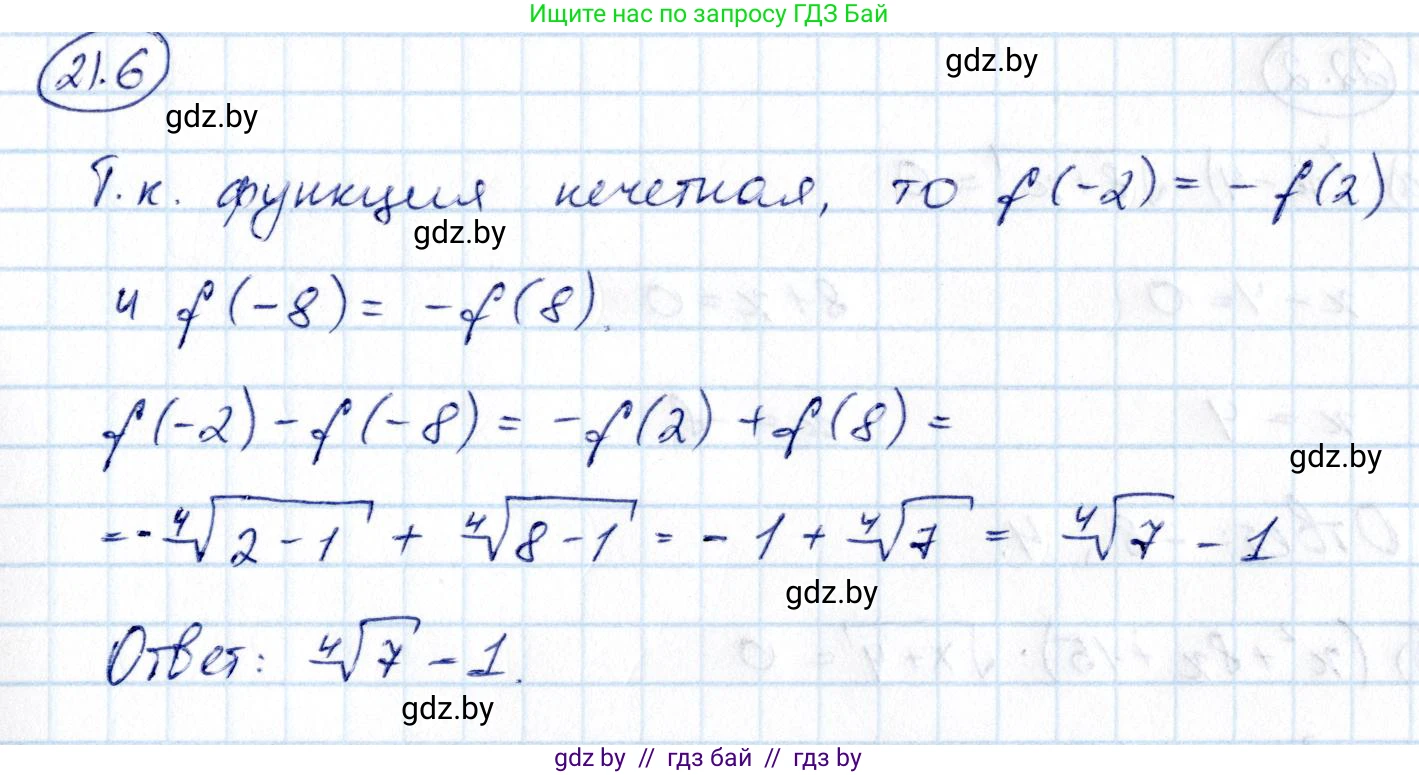 Ищите нас по запросу ГДЗ Бай
21.6
gdz.by
gdz.by
Т.к. функция нечетная, то f(-2) = - f(2)
gdz.by
и f(-8) = -f(8).
f(-2) - f(-8) = -f(2) + f(8) =
gdz.by
= - ∜(2-1) + ∜(8-1) = - 1 + ∜7 = ∜7 - 1
gdz.by
Ответ: ∜7 - 1.
gdz.by
gdz by // гдз бай // гдз by